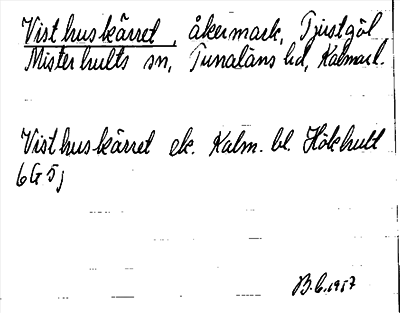 Visthuskärret, åkermark, Tjustgöl,
Misterhults sn, Tunaläns hd, Kalmar l.
Visthuskärret ek. Kalm. bl. Hökhult
6G5j
B.C. 1957